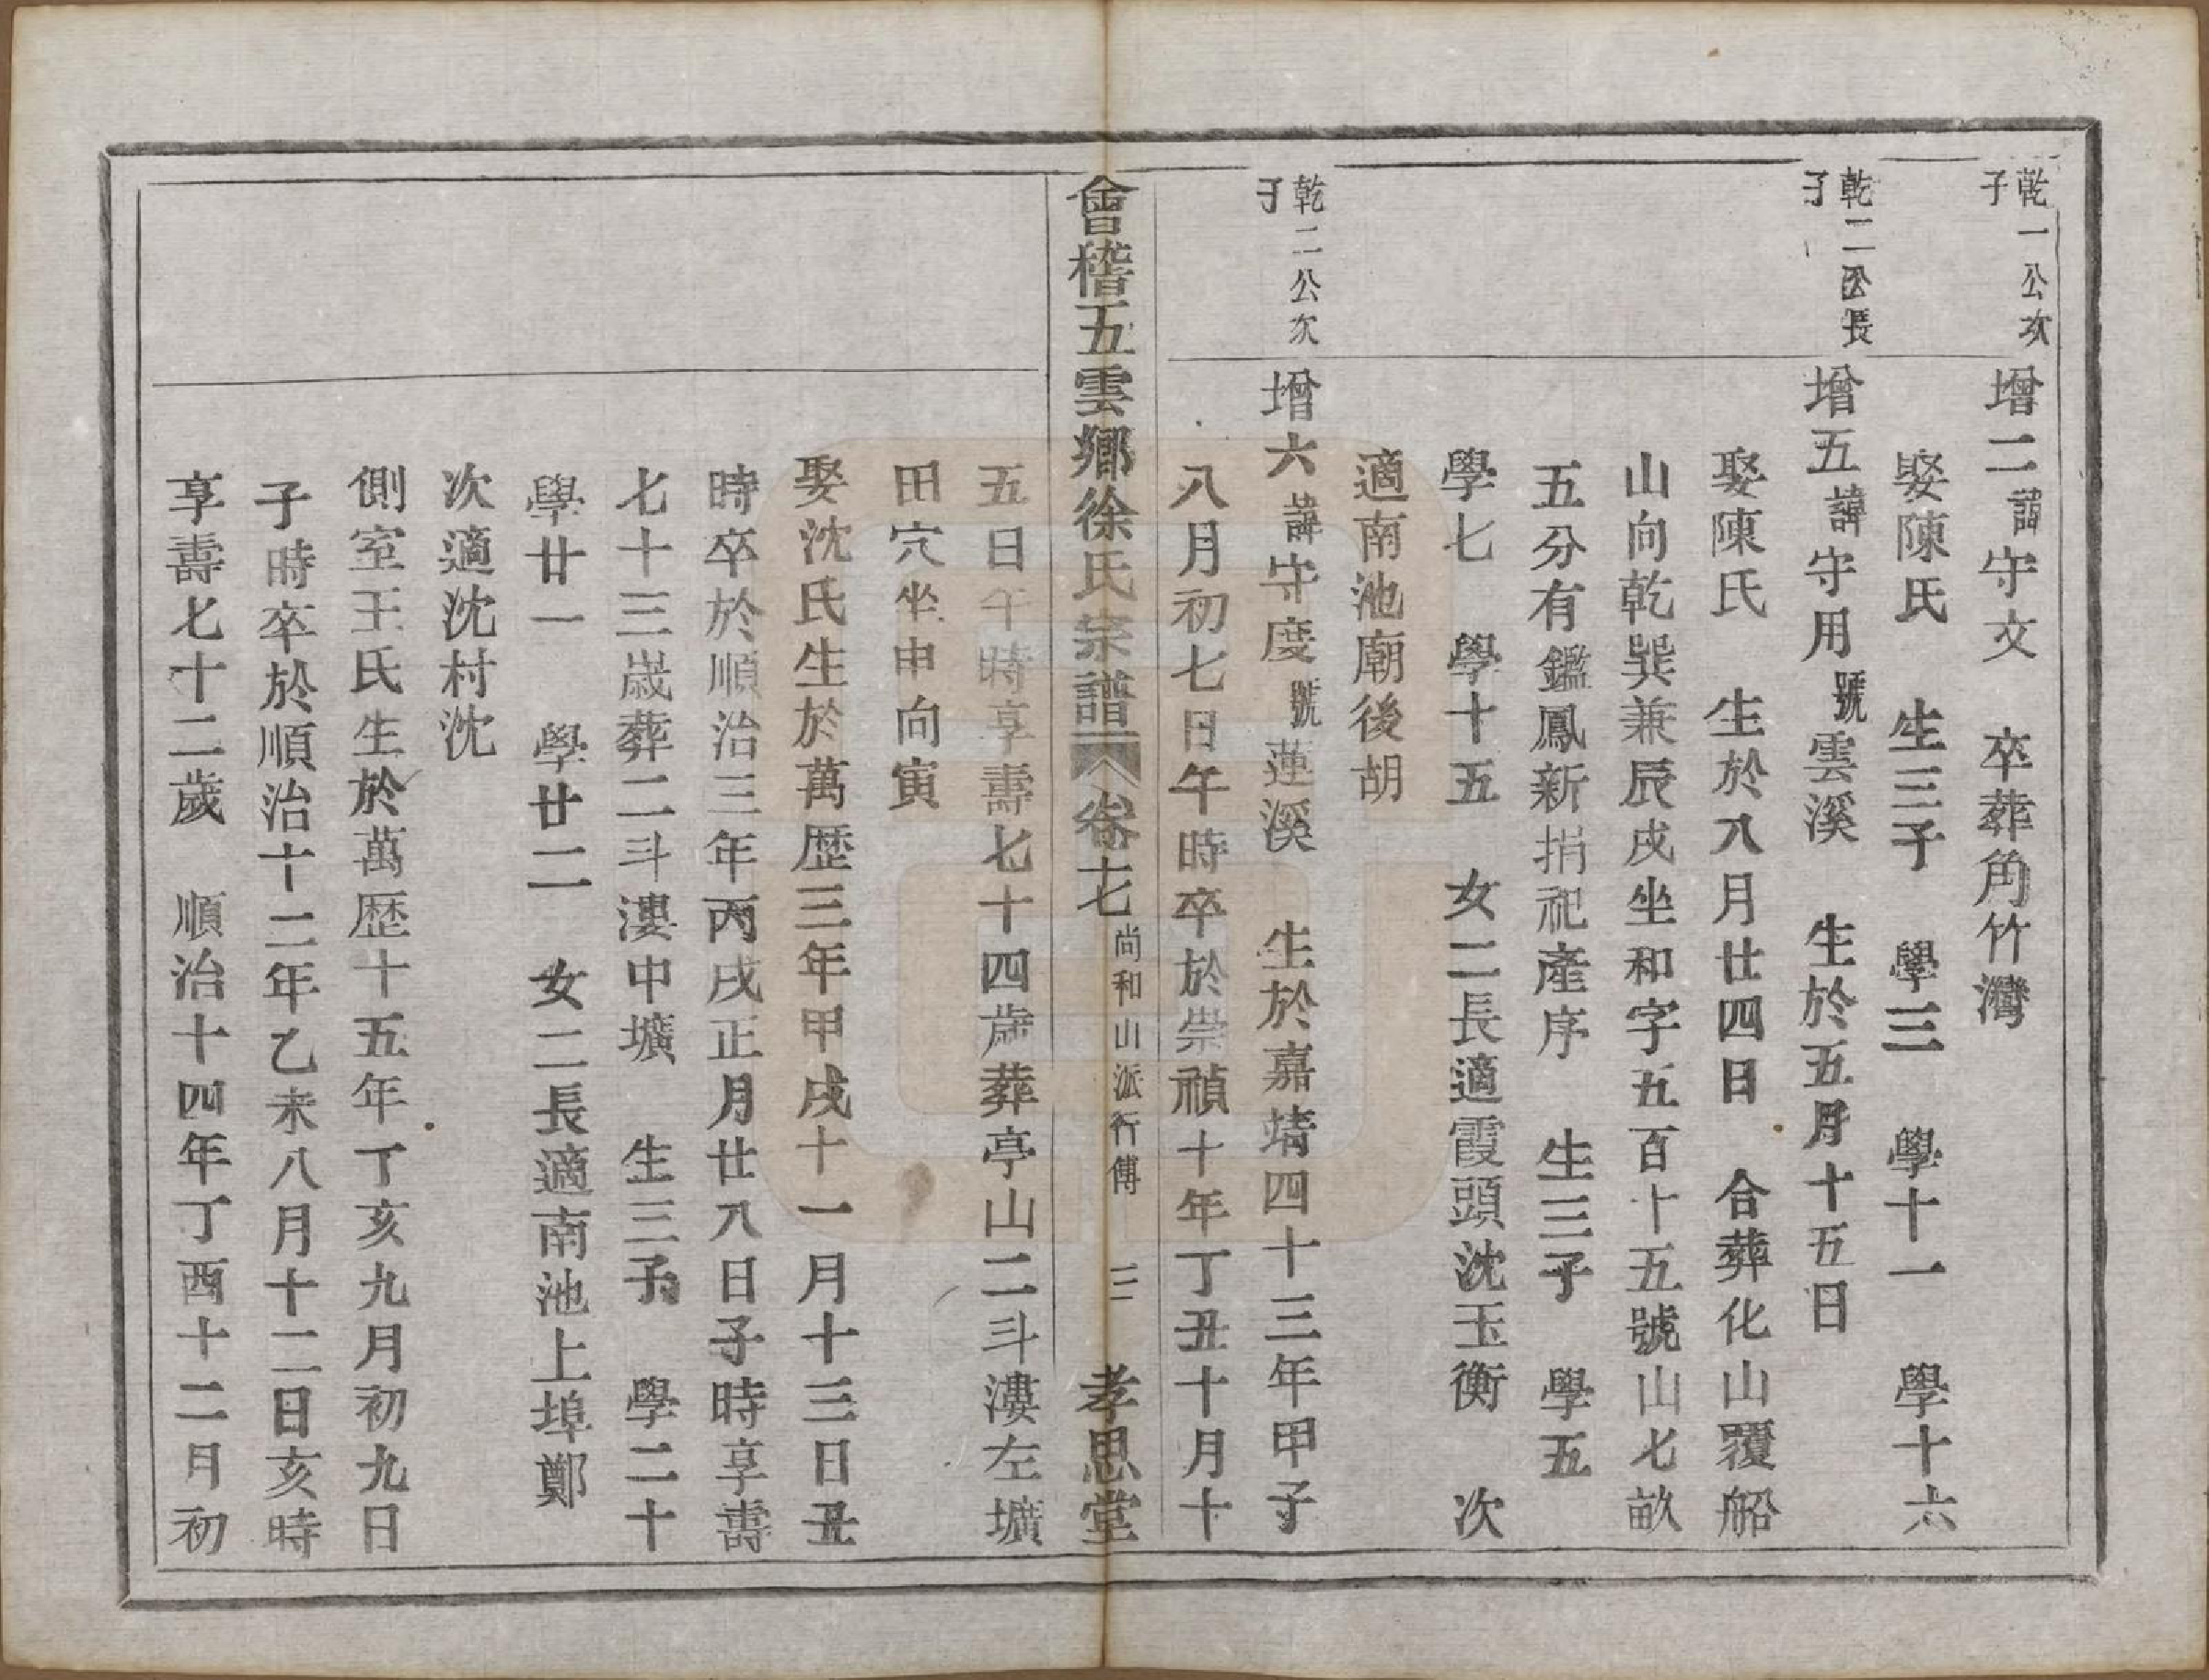 乾一公次子
增二諱守文　卒葬角竹灣
娶陳氏　生三子　學三　學十一　學十六
乾二公長子
增五諱守用號雲溪　生於五月十五日
娶陳氏　生於八月廿四日　合葬化山覆船
山向乾巽兼辰戌坐和字五百十五號山七畝
五分有鑑鳳新捐祀產序　生三子　學五
學七　學十五　女二長適霞頭沈玉衡　次
適南池廟後胡
乾二公次子
增六諱守度號蓮溪　生於嘉靖四十三年甲子
八月初七日午時卒於崇禎十年丁丑十月十
會稽五雲鄉徐氏宗譜　卷十七　尚和山派行傳　三　孝思堂
五日午時享壽七十四歲葬亭山二斗漊左壙
田穴坐申向寅
娶沈氏生於萬歷三年甲戌十一月十三日丑
時卒於順治三年丙戌正月廿八日子時享壽
七十三歲葬二斗漊中壙　生三子　學二十
學廿一　學廿二　女二長適南池上埠鄭
次適沈村沈
側室王氏生於萬歷十五年丁亥九月初九日
子時卒於順治十二年乙未八月十二日亥時
享壽七十二歲　順治十四年丁酉十二月初